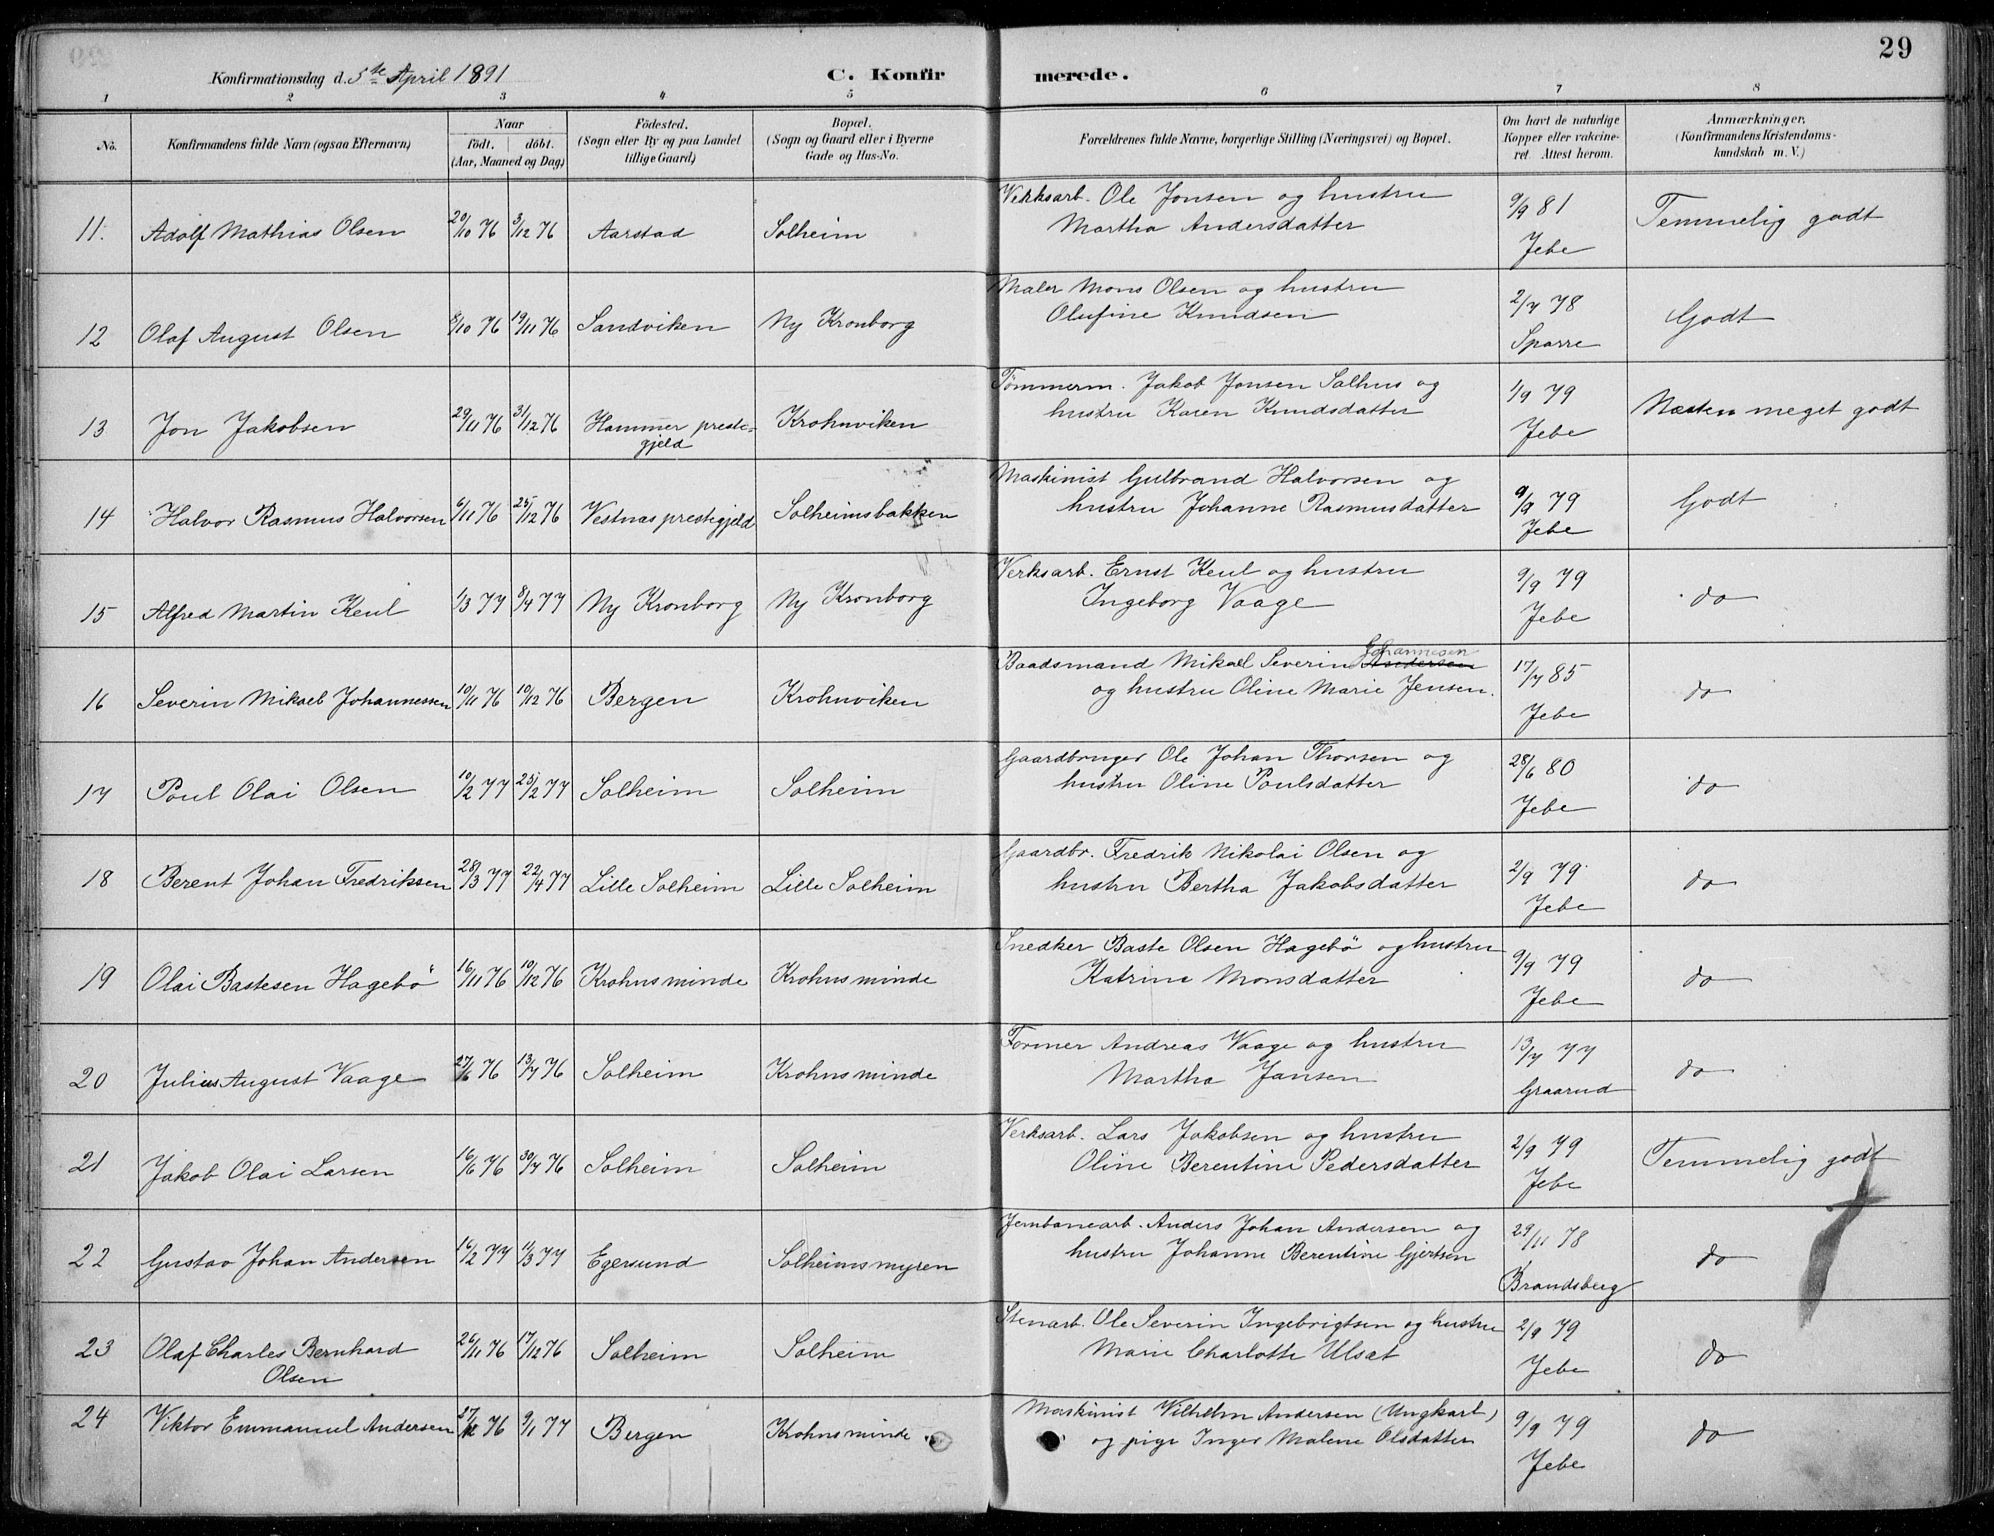 29
Konfirmationsdag d. 5te April 1891
C. Konfirmerede.
1 2 3 4 5 6 7 8
No. Konfirmandens fulde Navn (ogsaa Efternavn) Naar födt. döbt. (Aar, Maaned og Dag) Födested. (Sogn eller By og paa Landet tillige Gaard) Bopæl. (Sogn og Gaard eller i Byerne Gade og Hus-No. Forældrenes fulde Navne, borgerlige Stilling (Næringsvei) og Bopæl. Om havt de naturlige Kopper eller vakcineret Attest herom. Anmærkninger. (Konfirmandens Kristendomskundskab m. V.)
11. Adolf Mathias Olsen 20/10 76 3/12 76 Aarstad Solheim Verksarb. Ole Jonsen og hustru
Martha Andersdatter 9/9 81 Jebe Temmelig godt
12 Olaf August Olsen 8/10 76 19/11 76 Sandviken Ny Kronborg Maler Mons Olsen og hustru
Olufine Knudsen 2/7 78 Sparre Godt
13 Jon Jakobsen 29/11 76 31/12 76 Hammer preste=
gjeld Krohnviken Tömmerm. Jakob Jonsen Salhus og
hustru Karen Knudsdatter 1/9 79 Jebe Næsten meget godt
14 Halvor Rasmus Halvorsen 6/11 76 25/12 76 Vestnas prestegjeld Solheimsbakken Maskinist Gulbrand Halvorsen og
hustru Johanne Rasmusdatter 9/9 79 Jebe Godt
15 Alfred Martin Keul 1/3 77 8/4 77 Ny Kronborg Ny Kronborg Verksarb. Ernst Keul og hustru
Ingeborg Vaage 9/9 79 Jebe do
16 Severin Mikael Johannessen 10/11 76 10/12 76 Bergen Krohnviken Baadsmand Mikael Severin Andersen Johannesen
og hustru Oline Marie Jensen. 17/7 85 Jebe do
17 Poul Olai Olsen 10/2 77 25/2 77 Solheim Solheim Gaardbruger Ole Johan Thorsen og
hustru Oline Poulsdatter 28/6 80 Jebe do
18 Berent Johan Fredriksen 28/3 77 22/4 77 Lille Solheim Lille Solheim Gaardbr. Fredrik Nikolai Olsen og
hustru Bertha Jakobsdatter 2/9 79 Jebe do
19 Olai Bastesen Hagebö 16/11 76 10/12 76 Krohnsminde Krohnsminde Snedker Baste Olsen Hagebö og hustru
Katrine Monsdatter 9/9 79 Jebe do
20 Julius August Vaage 27/6 76 13/7 76 Solheim Krohnsminde Former Andreas Vaage og hustru
Martha Jansen 13/7 77 Graarud do
21 Jakob Olai Larsen 16/6 76 30/7 76 Solheim Solheim Verksarb. Lars Jakobsen og hustru
Oline Berentine Pedersdatter 2/9 79 Jebe Temmelig godt
22 Gustav Johan Andersen 16/2 77 11/3 77 Egersund Solheimsmyren Jernbanearb. Anders Johan Andersen og
hustru Johanne Berentine Gjertsen 29/11 78 Brandsberg do
23 Olaf Charles Bernhard
Olsen 26/11 76 17/12 76 Solheim Solheim Stenarb. Ole Severin Ingebrigtsen og hustru
Marie Charlotte Ulsat 2/9 79 Jebe do
24 Viktor Emmanuel Andersen 27/12 76 9/1 77 Bergen Krohnsminde Maskinist Vilhelm Andersen (Ungkarl)
og pige Inger Malene Olsdatter 9/9 79 Jebe do